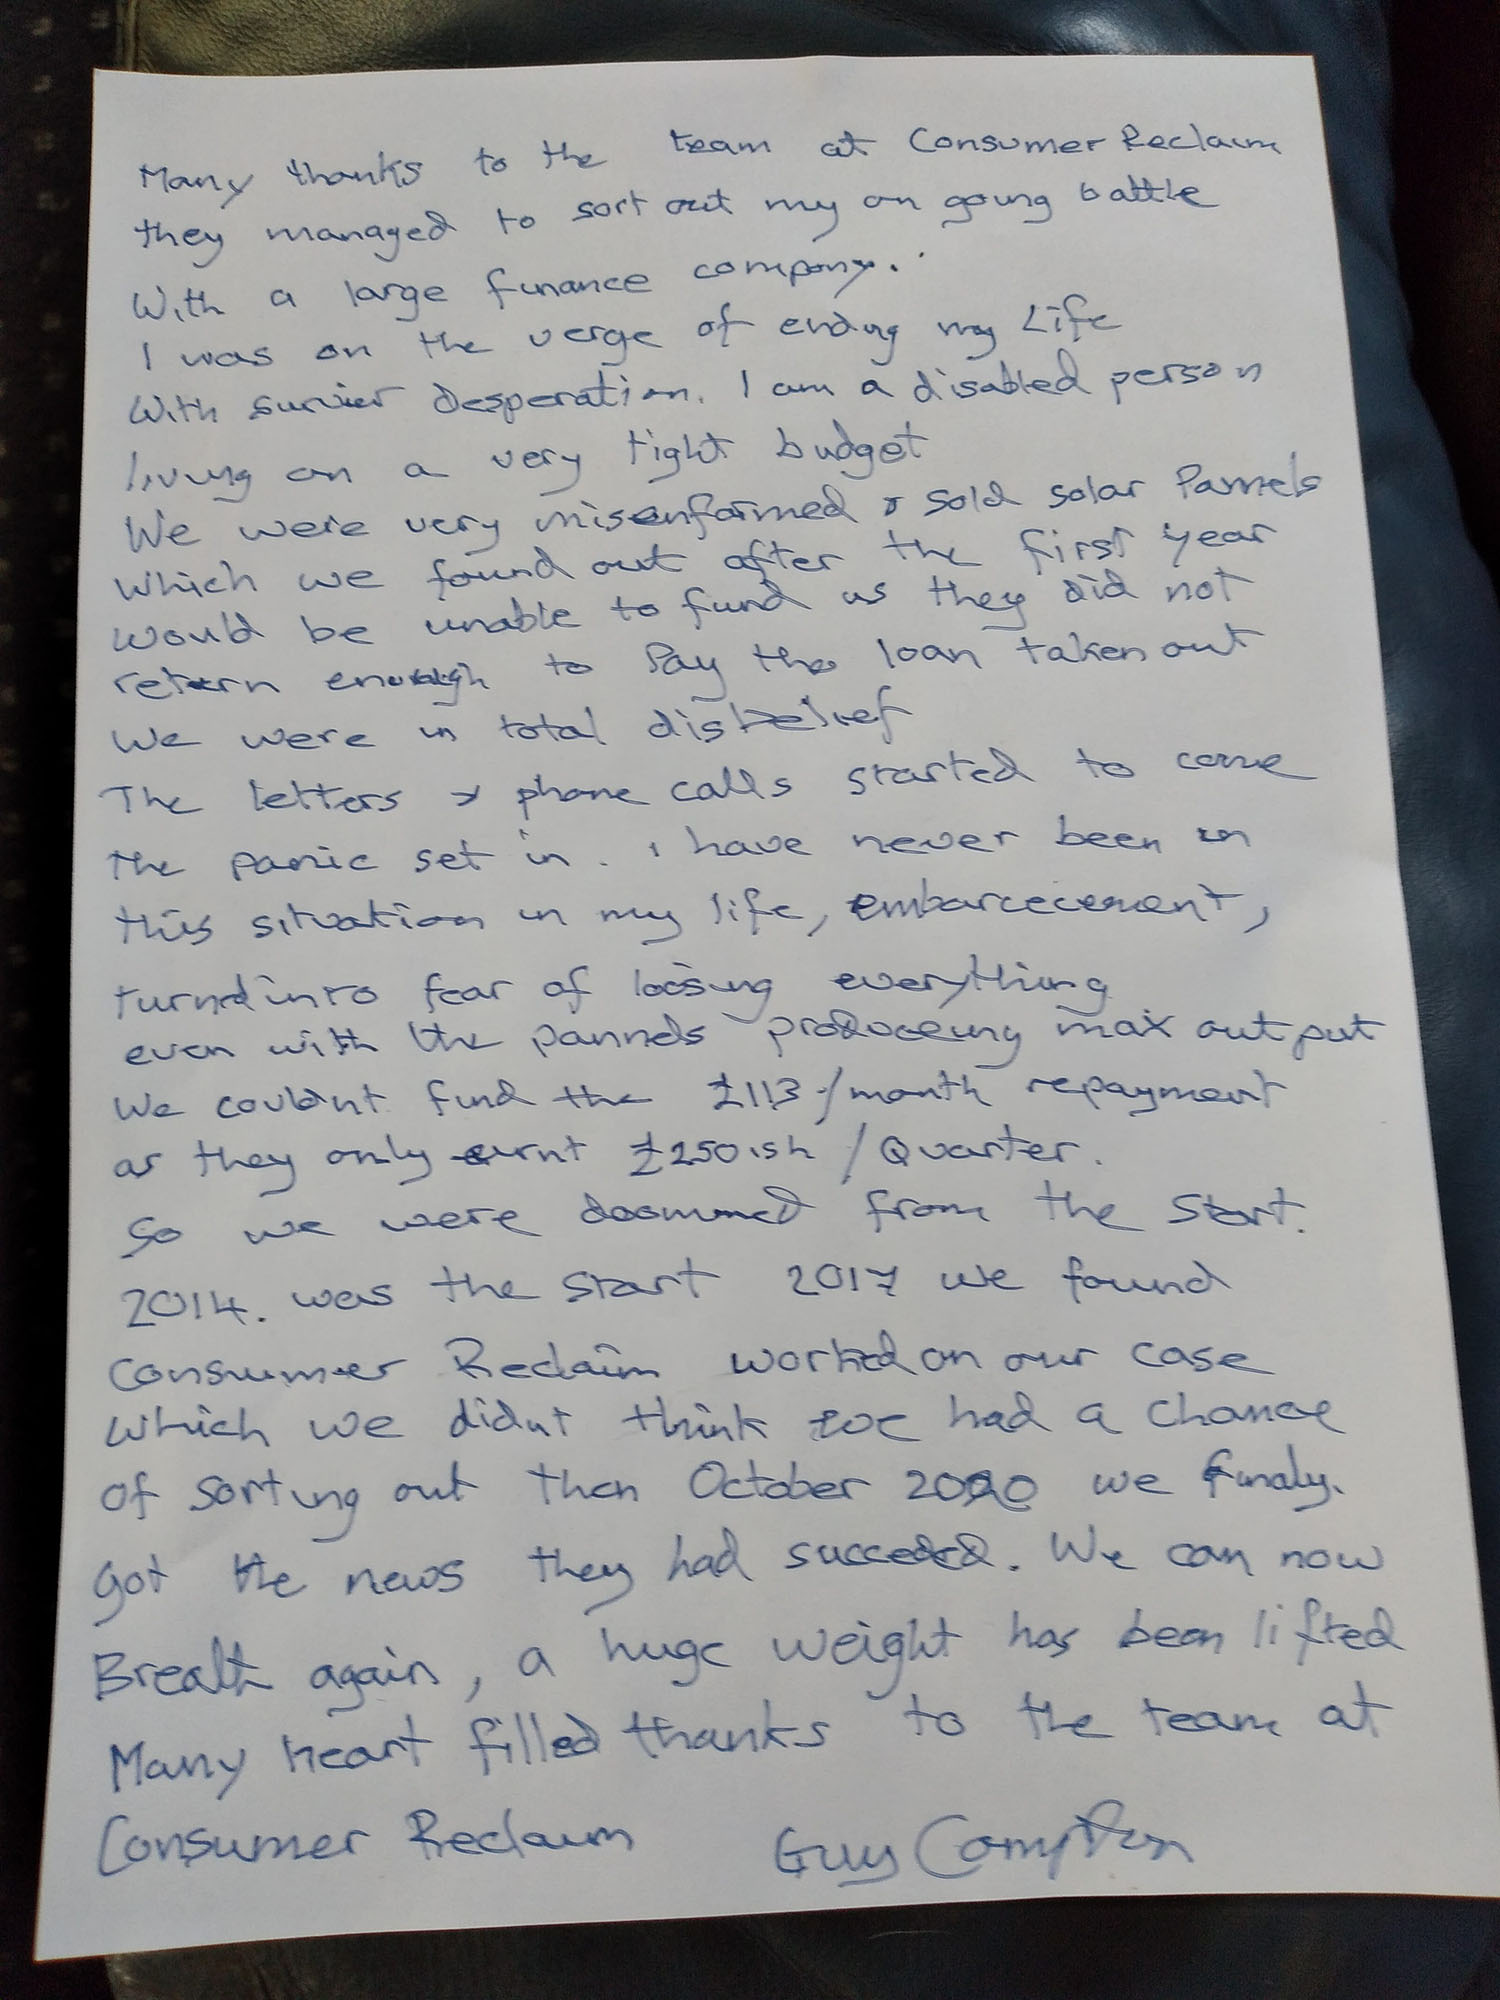 Many thanks to the team at Consumer Reclaim
they managed to sort out my on going battle
With a large finance company.
I was on the verge of ending my Life
With desperation. I am a disabled person
living on a very tight budget
We were very misenformed & sold solar Pannels
which we found out after the first year
would be unable to fund as they did not
return enough to Pay the loan taken out
We were in total disbelief
The letters & phone calls started to come
the panic set in. I have never been in
this situation in my life, embarcecement,
turned into fear of loosing everything
even with the pannels produceing max output
We couldnt fund the £113/month repayment
as they only earnt £250ish / Quarter.
So we were doommed from the Start.
2014. was the start 2017 we found
Consumer Reclaim worked on our case
which we didnt think we had a chance
of sorting out then October 2020 we finaly.
Got the news they had succeded. We can now
Breath again, a huge weight has been lifted
Many heart filled thanks to the team at
Consumer Reclaim Guy Compton